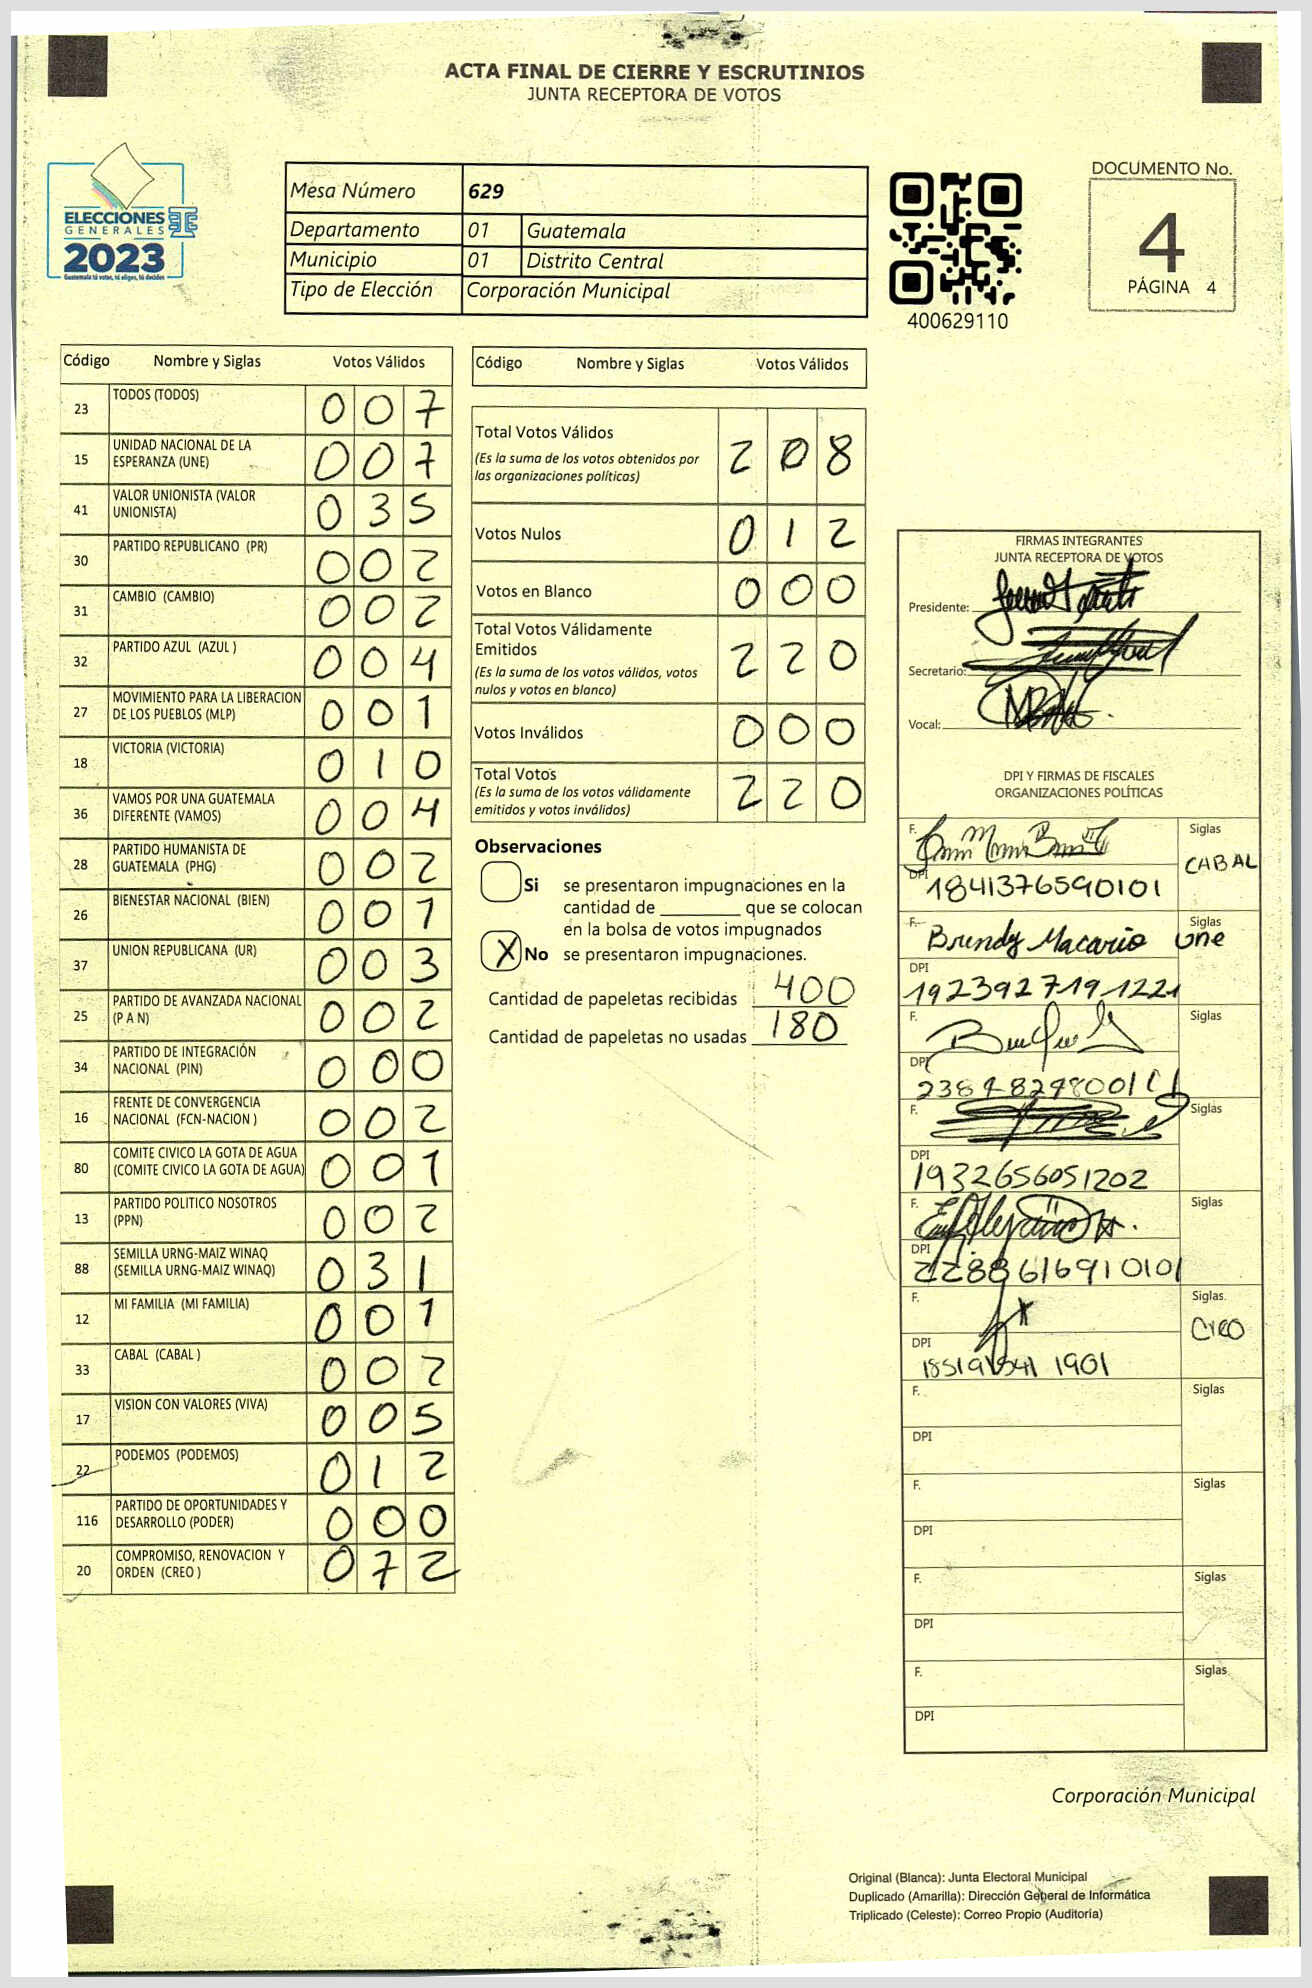 ACTA FINAL DE CIERRE Y ESCRUTINIOS
JUNTA RECEPTORA DE VOTOS
ELECCIONES
GENERALES
2023
Guatemala tú votas, tú eliges, tú decides
Mesa Número 629
Departamento 01 Guatemala
Municipio 01 Distrito Central
Tipo de Elección Corporación Municipal
400629110
DOCUMENTO No.
4
PÁGINA 4
Código Nombre y Siglas Votos Válidos
23 TODOS (TODOS) 0 0 7
15 UNIDAD NACIONAL DE LA
ESPERANZA (UNE) 0 0 7
41 VALOR UNIONISTA (VALOR
UNIONISTA) 0 3 5
30 PARTIDO REPUBLICANO (PR) 0 0 2
31 CAMBIO (CAMBIO) 0 0 2
32 PARTIDO AZUL (AZUL ) 0 0 4
27 MOVIMIENTO PARA LA LIBERACION
DE LOS PUEBLOS (MLP) 0 0 1
18 VICTORIA (VICTORIA) 0 1 0
36 VAMOS POR UNA GUATEMALA
DIFERENTE (VAMOS) 0 0 4
28 PARTIDO HUMANISTA DE
GUATEMALA (PHG) 0 0 2
26 BIENESTAR NACIONAL (BIEN) 0 0 1
37 UNION REPUBLICANA (UR) 0 0 3
25 PARTIDO DE AVANZADA NACIONAL
(P A N) 0 0 2
34 PARTIDO DE INTEGRACIÓN
NACIONAL (PIN) 0 0 0
16 FRENTE DE CONVERGENCIA
NACIONAL (FCN-NACION ) 0 0 2
80 COMITE CIVICO LA GOTA DE AGUA
(COMITE CIVICO LA GOTA DE AGUA) 0 0 1
13 PARTIDO POLITICO NOSOTROS
(PPN) 0 0 2
88 SEMILLA URNG-MAIZ WINAQ
(SEMILLA URNG-MAIZ WINAQ) 0 3 1
12 MI FAMILIA (MI FAMILIA) 0 0 1
33 CABAL (CABAL ) 0 0 2
17 VISION CON VALORES (VIVA) 0 0 5
22 PODEMOS (PODEMOS) 0 1 2
116 PARTIDO DE OPORTUNIDADES Y
DESARROLLO (PODER) 0 0 0
20 COMPROMISO, RENOVACION Y
ORDEN (CREO ) 0 7 2
Código Nombre y Siglas Votos Válidos
Total Votos Válidos 2 0 8
(Es la suma de los votos obtenidos por
las organizaciones políticas)
Votos Nulos 0 1 2
Votos en Blanco 0 0 0
Total Votos Válidamente
Emitidos 2 2 0
(Es la suma de los votos válidos, votos
nulos y votos en blanco)
Votos Inválidos 0 0 0
Total Votos 2 2 0
(Es la suma de los votos válidamente
emitidos y votos inválidos)
Observaciones
Si se presentaron impugnaciones en la
cantidad de ________ que se colocan
en la bolsa de votos impugnados
X No se presentaron impugnaciones.
Cantidad de papeletas recibidas 400
Cantidad de papeletas no usadas 180
FIRMAS INTEGRANTES
JUNTA RECEPTORA DE VOTOS
Presidente:
Secretario:
Vocal:
DPI Y FIRMAS DE FISCALES
ORGANIZACIONES POLÍTICAS
F. Siglas
CABAL
DPI 1841376590101
F. Brendy Macario Siglas
une
DPI
1923927191221
F. Siglas
DPI
F. Siglas
DPI
1932656051202
F. Siglas
DPI
2288616910101
F. Siglas.
CREO
DPI
F. Siglas
DPI
F. Siglas
DPI
F. Siglas
DPI
F. Siglas
DPI
Corporación Municipal
Original (Blanca): Junta Electoral Municipal
Duplicado (Amarilla): Dirección General de Informática
Triplicado (Celeste): Correo Propio (Auditoría)